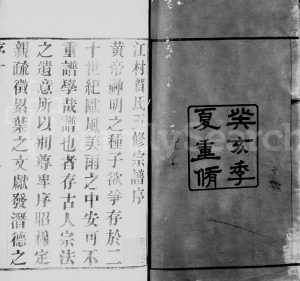 癸亥季
夏重脩
江村賀氏五修宗譜序
黃帝神明之種子欲爭存於二
十世紀歐風美雨之中安可不
重譜學哉譜也者存古人宗法
之遺意所以別尊卑序昭穆定
親疏徵累葉之文獻發潛德之
序一